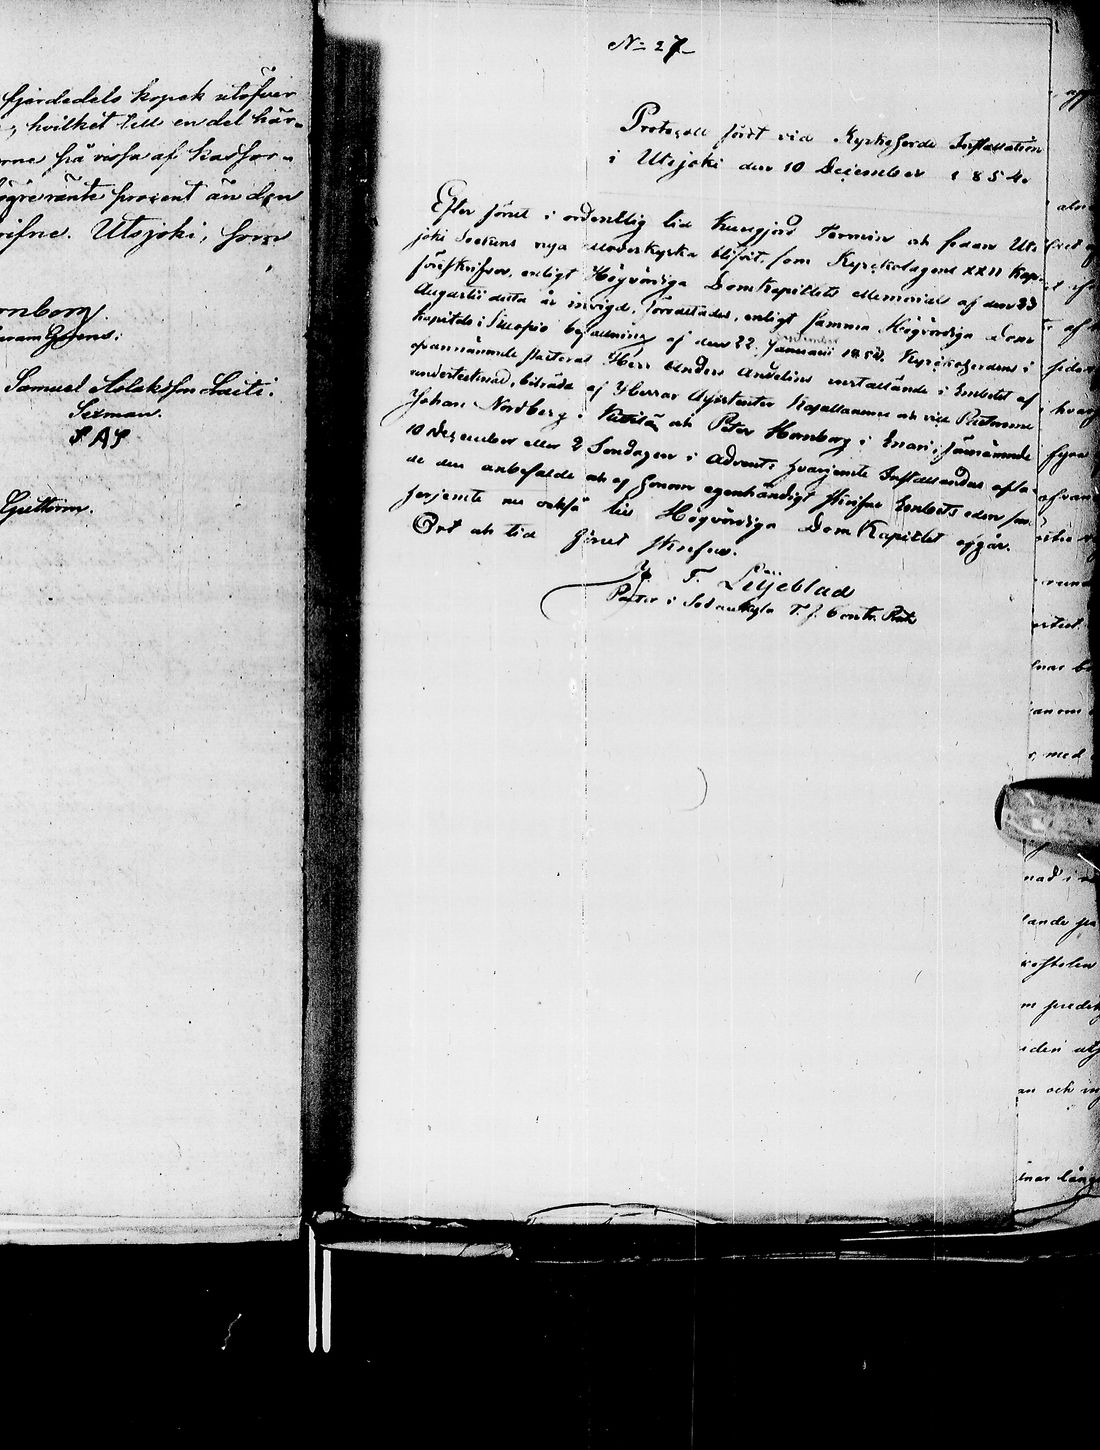 fjerdedels kopek utöfver
, hvilket till en del här-
orne frå vissa af kassor-
ögre ränte procent än den
rifne. Utsjoki, som
ornberg
Samuel Aslaksson Laiti.
Sexman.
S A S
Guttorm.
No 27
Protocoll fördt vid Kyrkoherde Installation
i Utsjoki den 10 December 1854.
Efter förut i ordentlig tid kungjord Termin och sedan Uts-
joki Sockens nya Moderkyrka blifvit, som Kyrkolagens XXII Kap.
föreskrifver, enligt Högvördiga DomKapitlets Memorial af den 23
Augustii detta år invigd, förrättades, enligt samma Högvördiga Dom
kapitels i Kuopio befallning af den 22 Januarii 1854, Kyrkoherdens i
ofvannämnde Pastorat Herr Anders Andelins installande i Embetet af
undertecknad, biträdd af Herrar Assistenter Kapellanerne och vice Pastorerne
Johan Nordberg i Kittilä och Peter Hornborg i Enari, förenämnde
10 December eller 2 Söndagen i Advent; hvarjemte Installandus afla-
de den anbefalde och af honom egenhändigt skrifne Embets eden, som
härjemte nu också till Högvördiga DomKapitlet afgår.
Ort och tid förut skrefven.
J. F. Liljeblad
Pastor i Sodankylä T. f. Contr. Prost
af
med
nad i
lande på
m predik
iden
an och